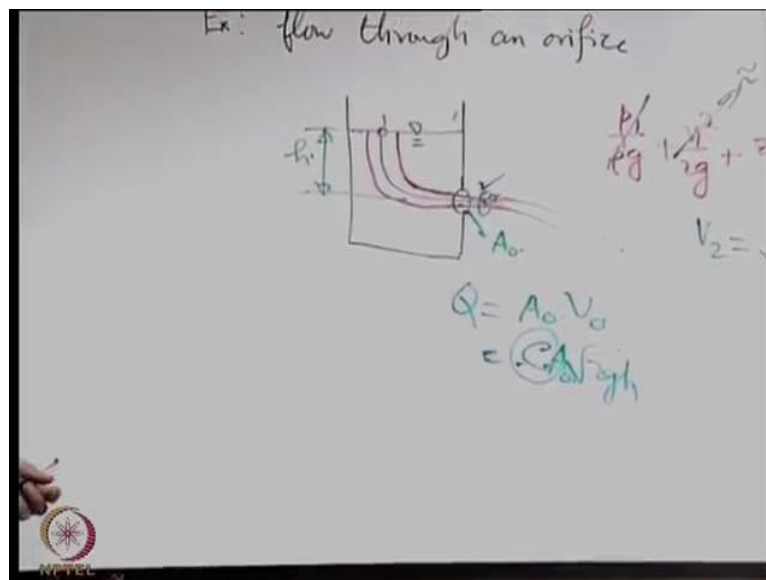 Ex: flow through an orifice
1
h
2
A₀.
p₁/ρg + v₁²/2g +
V₂ =
Q = A₀ V₀
= C A₀ √2gh
NPTEL